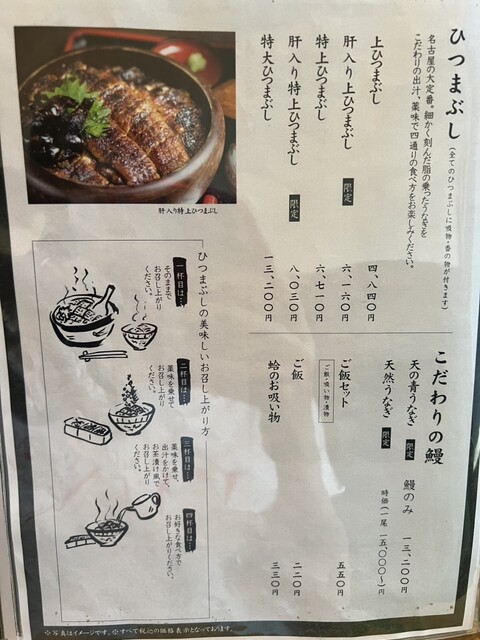 ひつまぶし（全てのひつまぶしに吸物・香の物が付きます）
名古屋の大定番。細かく刻んだ脂の乗ったうなぎを
こだわりの出汁、薬味で四通りの食べ方をお楽しみください。
上ひつまぶし 四、八四〇円
肝入り上ひつまぶし 限定 六、一六〇円
特上ひつまぶし 六、七一〇円
肝入り特上ひつまぶし 限定 八、〇三〇円
特大ひつまぶし 一三、二〇〇円
肝入り特上ひつまぶし
こだわりの鰻
天の青うなぎ 限定 鰻のみ 一三、二〇〇円
天然うなぎ 限定 時価（一尾 一五、〇〇〇〜）円
ご飯セット 五五〇円
ご飯・吸い物・漬物
ご飯 二二〇円
蛤のお吸い物 三三〇円
ひつまぶしの美味しいお召し上がり方
一杯目は…
そのままで
お召し上がり
ください。
二杯目は…
薬味を乗せて
お召し上がり
ください。
三杯目は…
薬味を乗せ、
出汁をかけて、
お茶漬け風で
お召し上がり
ください。
四杯目は…
お好きな食べ方で
お召し上がりください。
※写真はイメージです。※すべて税込の価格表示となっております。